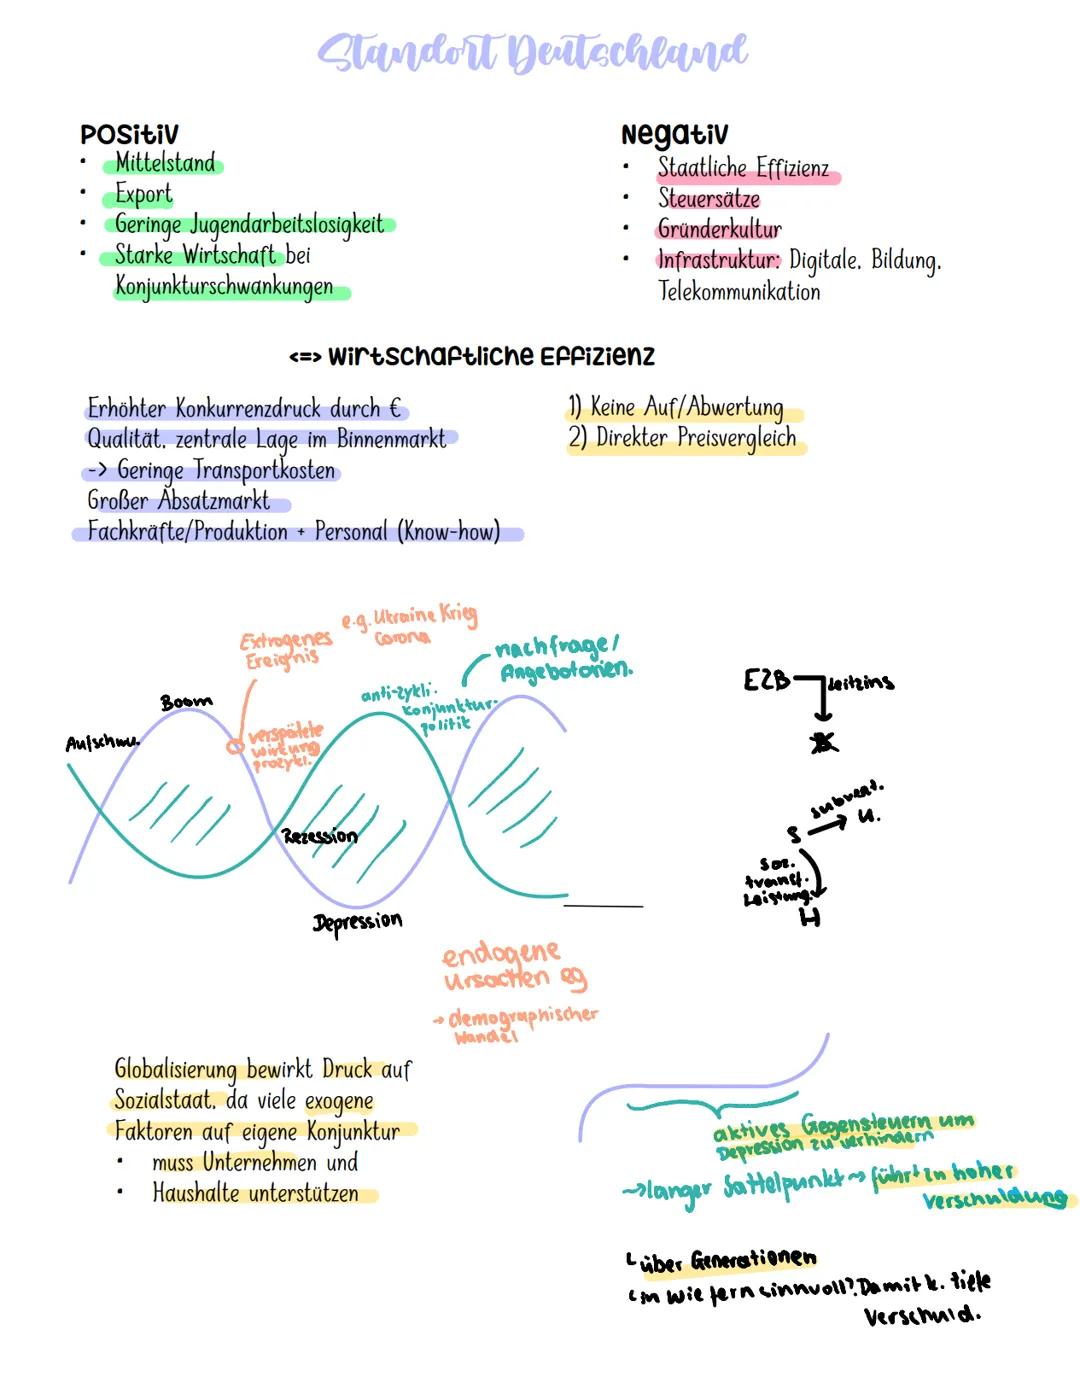 Standort Deutschland
Positiv
• Mittelstand
• Export
• Geringe Jugendarbeitslosigkeit
• Starke Wirtschaft bei
Konjunkturschwankungen
Negativ
• Staatliche Effizienz
• Steuersätze
• Gründerkultur
• Infrastruktur: Digitale, Bildung,
Telekommunikation
<=> Wirtschaftliche Effizienz
Erhöhter Konkurrenzdruck durch €
Qualität, zentrale Lage im Binnenmarkt
-> Geringe Transportkosten
Großer Absatzmarkt
Fachkräfte/Produktion + Personal (Know-how)
1) Keine Auf/Abwertung
2) Direkter Preisvergleich
Extrogenes
Ereignis
e.g. Ukraine Krieg
Corona
nachfrage/
Angebotorien.
anti-zykli.
Konjunktur-
politik
Boom
Aufschwu.
verspätete
wirkung
prozykl.
Rezession
Depression
EZB
leitzins
subvent.
S
U.
soz.
transf.
Leistung.
H
endogene
Ursachen eg
→ demographischer
Wandel
Globalisierung bewirkt Druck auf
Sozialstaat, da viele exogene
Faktoren auf eigene Konjunktur
• muss Unternehmen und
• Haushalte unterstützen
aktives Gegensteuern um
Depression zu verhindern
~>langer Sattelpunkt ~> führt zu hoher
Verschuldung
über Generationen
in wie fern sinnvoll? Damit k. tiefe
Verschuld.